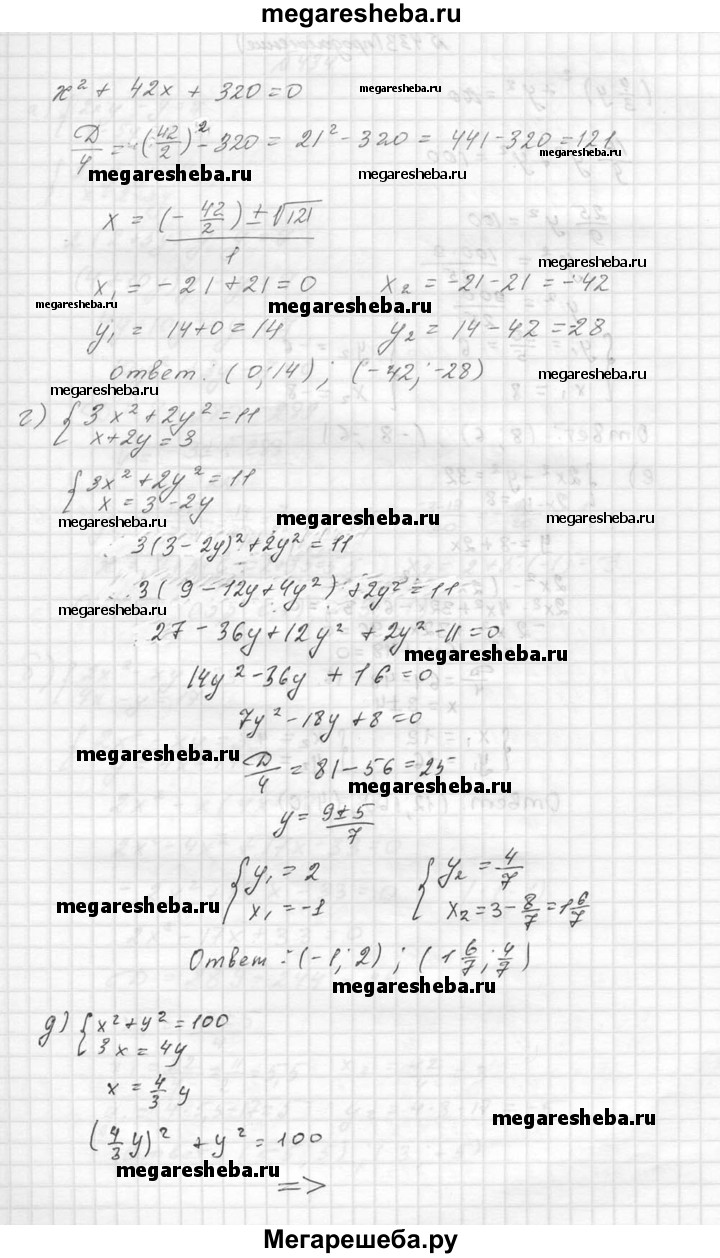 megaresheba.ru
x² + 42x + 320 = 0
D/4 = (42/2)² - 320 = 21² - 320 = 441 - 320 = 121
megaresheba.ru
megaresheba.ru megaresheba.ru
x = (- 42/2) ± √121 / 1
megaresheba.ru
x₁ = -21 + 21 = 0 x₂ = -21 - 21 = -42
megaresheba.ru megaresheba.ru
y₁ = 14 + 0 = 14 y₂ = 14 - 42 = -28
megaresheba.ru
Ответ: (0; 14); (-42; -28)
megaresheba.ru
г) { 3x² + 2y² = 11
x + 2y = 3
{ 3x² + 2y² = 11
x = 3 - 2y
megaresheba.ru megaresheba.ru megaresheba.ru
3(3 - 2y)² + 2y² = 11
3(9 - 12y + 4y²) + 2y² = 11
megaresheba.ru
27 - 36y + 12y² + 2y² - 11 = 0
megaresheba.ru
14y² - 36y + 16 = 0
7y² - 18y + 8 = 0
megaresheba.ru
D/4 = 81 - 56 = 25
megaresheba.ru
y = 9±5/7
{ y₁ = 2 { y₂ = 4/7
x₁ = -1 x₂ = 3 - 8/7 = 1 6/7
megaresheba.ru
Ответ: (-1; 2); (1 6/7; 4/7)
megaresheba.ru
д) { x² + y² = 100
3x = 4y
x = 4/3 y
megaresheba.ru
(4/3 y)² + y² = 100
megaresheba.ru
=>
Мегарешеба.ру